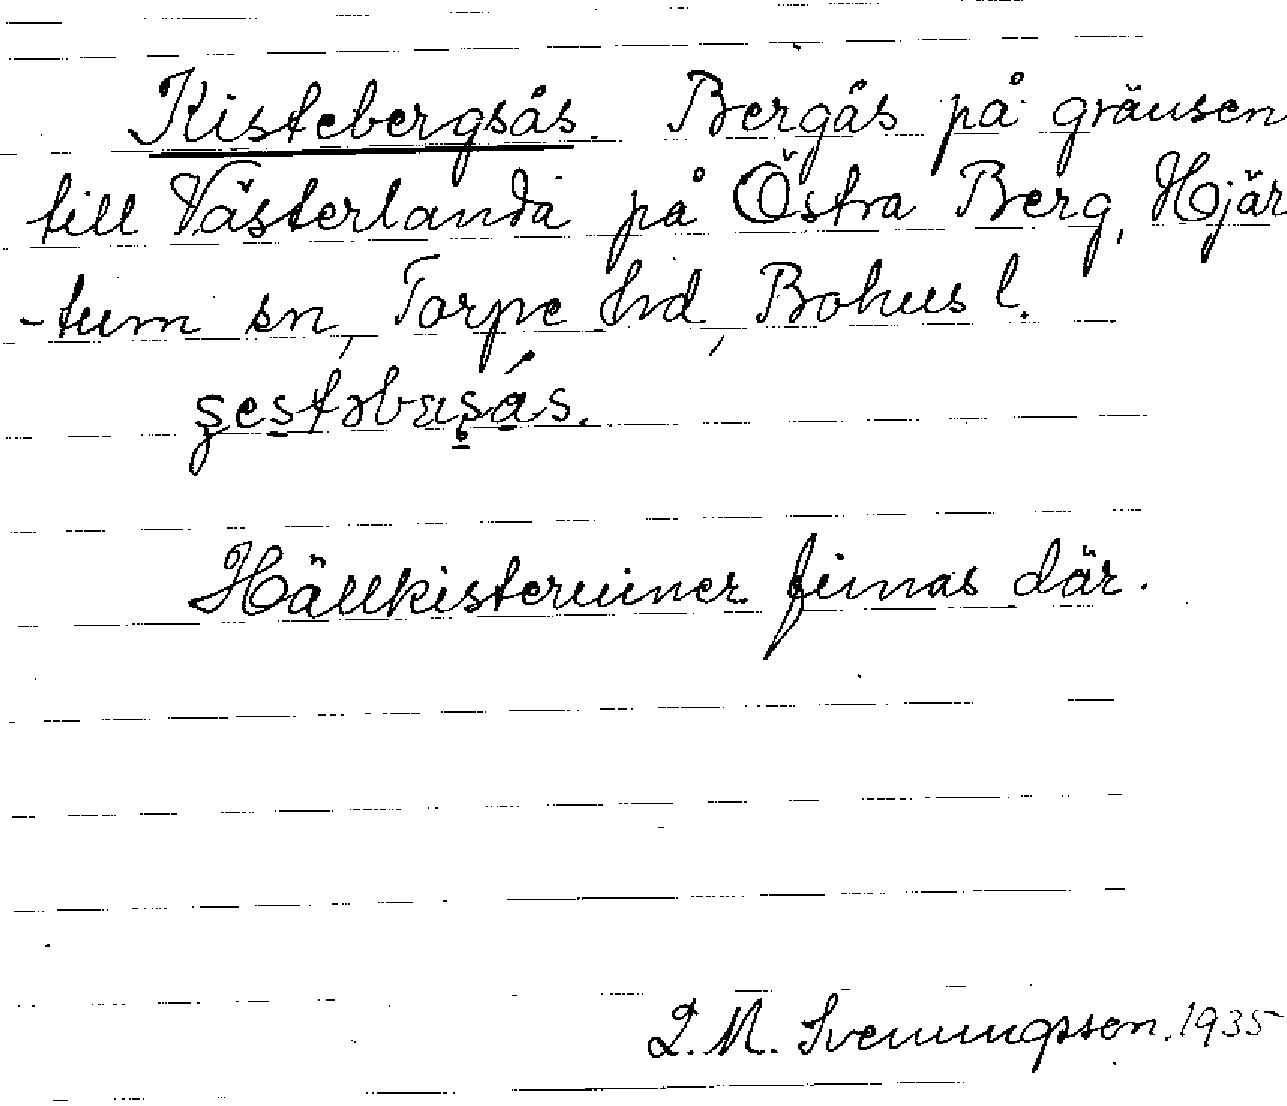 Kistebergsås. Bergås på gränsen
till Västerlanda på Östra Berg, Hjär
-tum sn, Torpe hd, Bohus l.
Hällkisteruiner finnas där.
L. M. Svenungsson. 1935